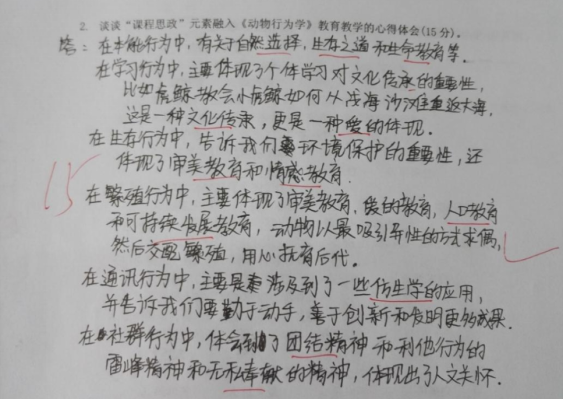 2. 谈谈“课程思政”元素融入《动物行为学》教育教学的心得体会(15分)。
答：在本能行为中，有关于自然选择，生存之道和生命教育等。
在学习行为中，主要体现了个体学习对文化传承的重要性，
比如虎鲸教会小虎鲸如何从浅海沙滩重返大海，
这是一种文化传承，更是一种爱的体现。
在生存行为中，告诉我们环境保护的重要性，还
体现了审美教育和情感教育。
15
在繁殖行为中，主要体现了审美教育、爱的教育，人口教育
和可持续发展教育，动物以最吸引异性的方式求偶，
然后交配繁殖，用心抚育后代。
在通讯行为中，主要是涉及到了一些仿生学的应用，
并告诉我们要勤于动手，善于创新和发明更多成果。
在社群行为中，体会到了团结精神和利他行为的
雷峰精神和无私奉献的精神，体现出了人文关怀。